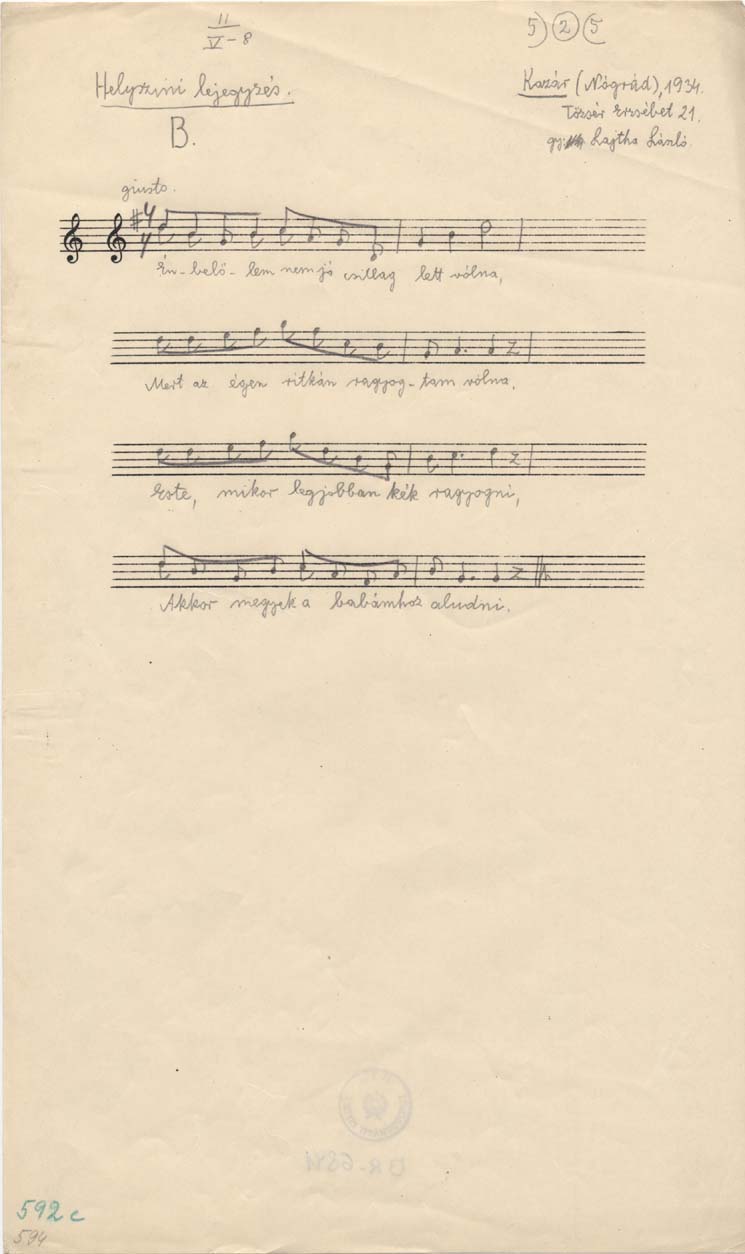 II
V-8
5) 2 (5
Helyszini lejegyzés.
Kazár (Nógrád), 1934.
B.
Tőzsér Erzsébet 21.
gy. Lajtha László
giusto.
4
4
Én-belő-lem nem jó csillag lett vólna,
Mert az égen ritkán ragyog-tam vólna,
Este, mikor legjobban kék ragyogni,
Akkor megyek a babámhoz aludni.
592 c
594